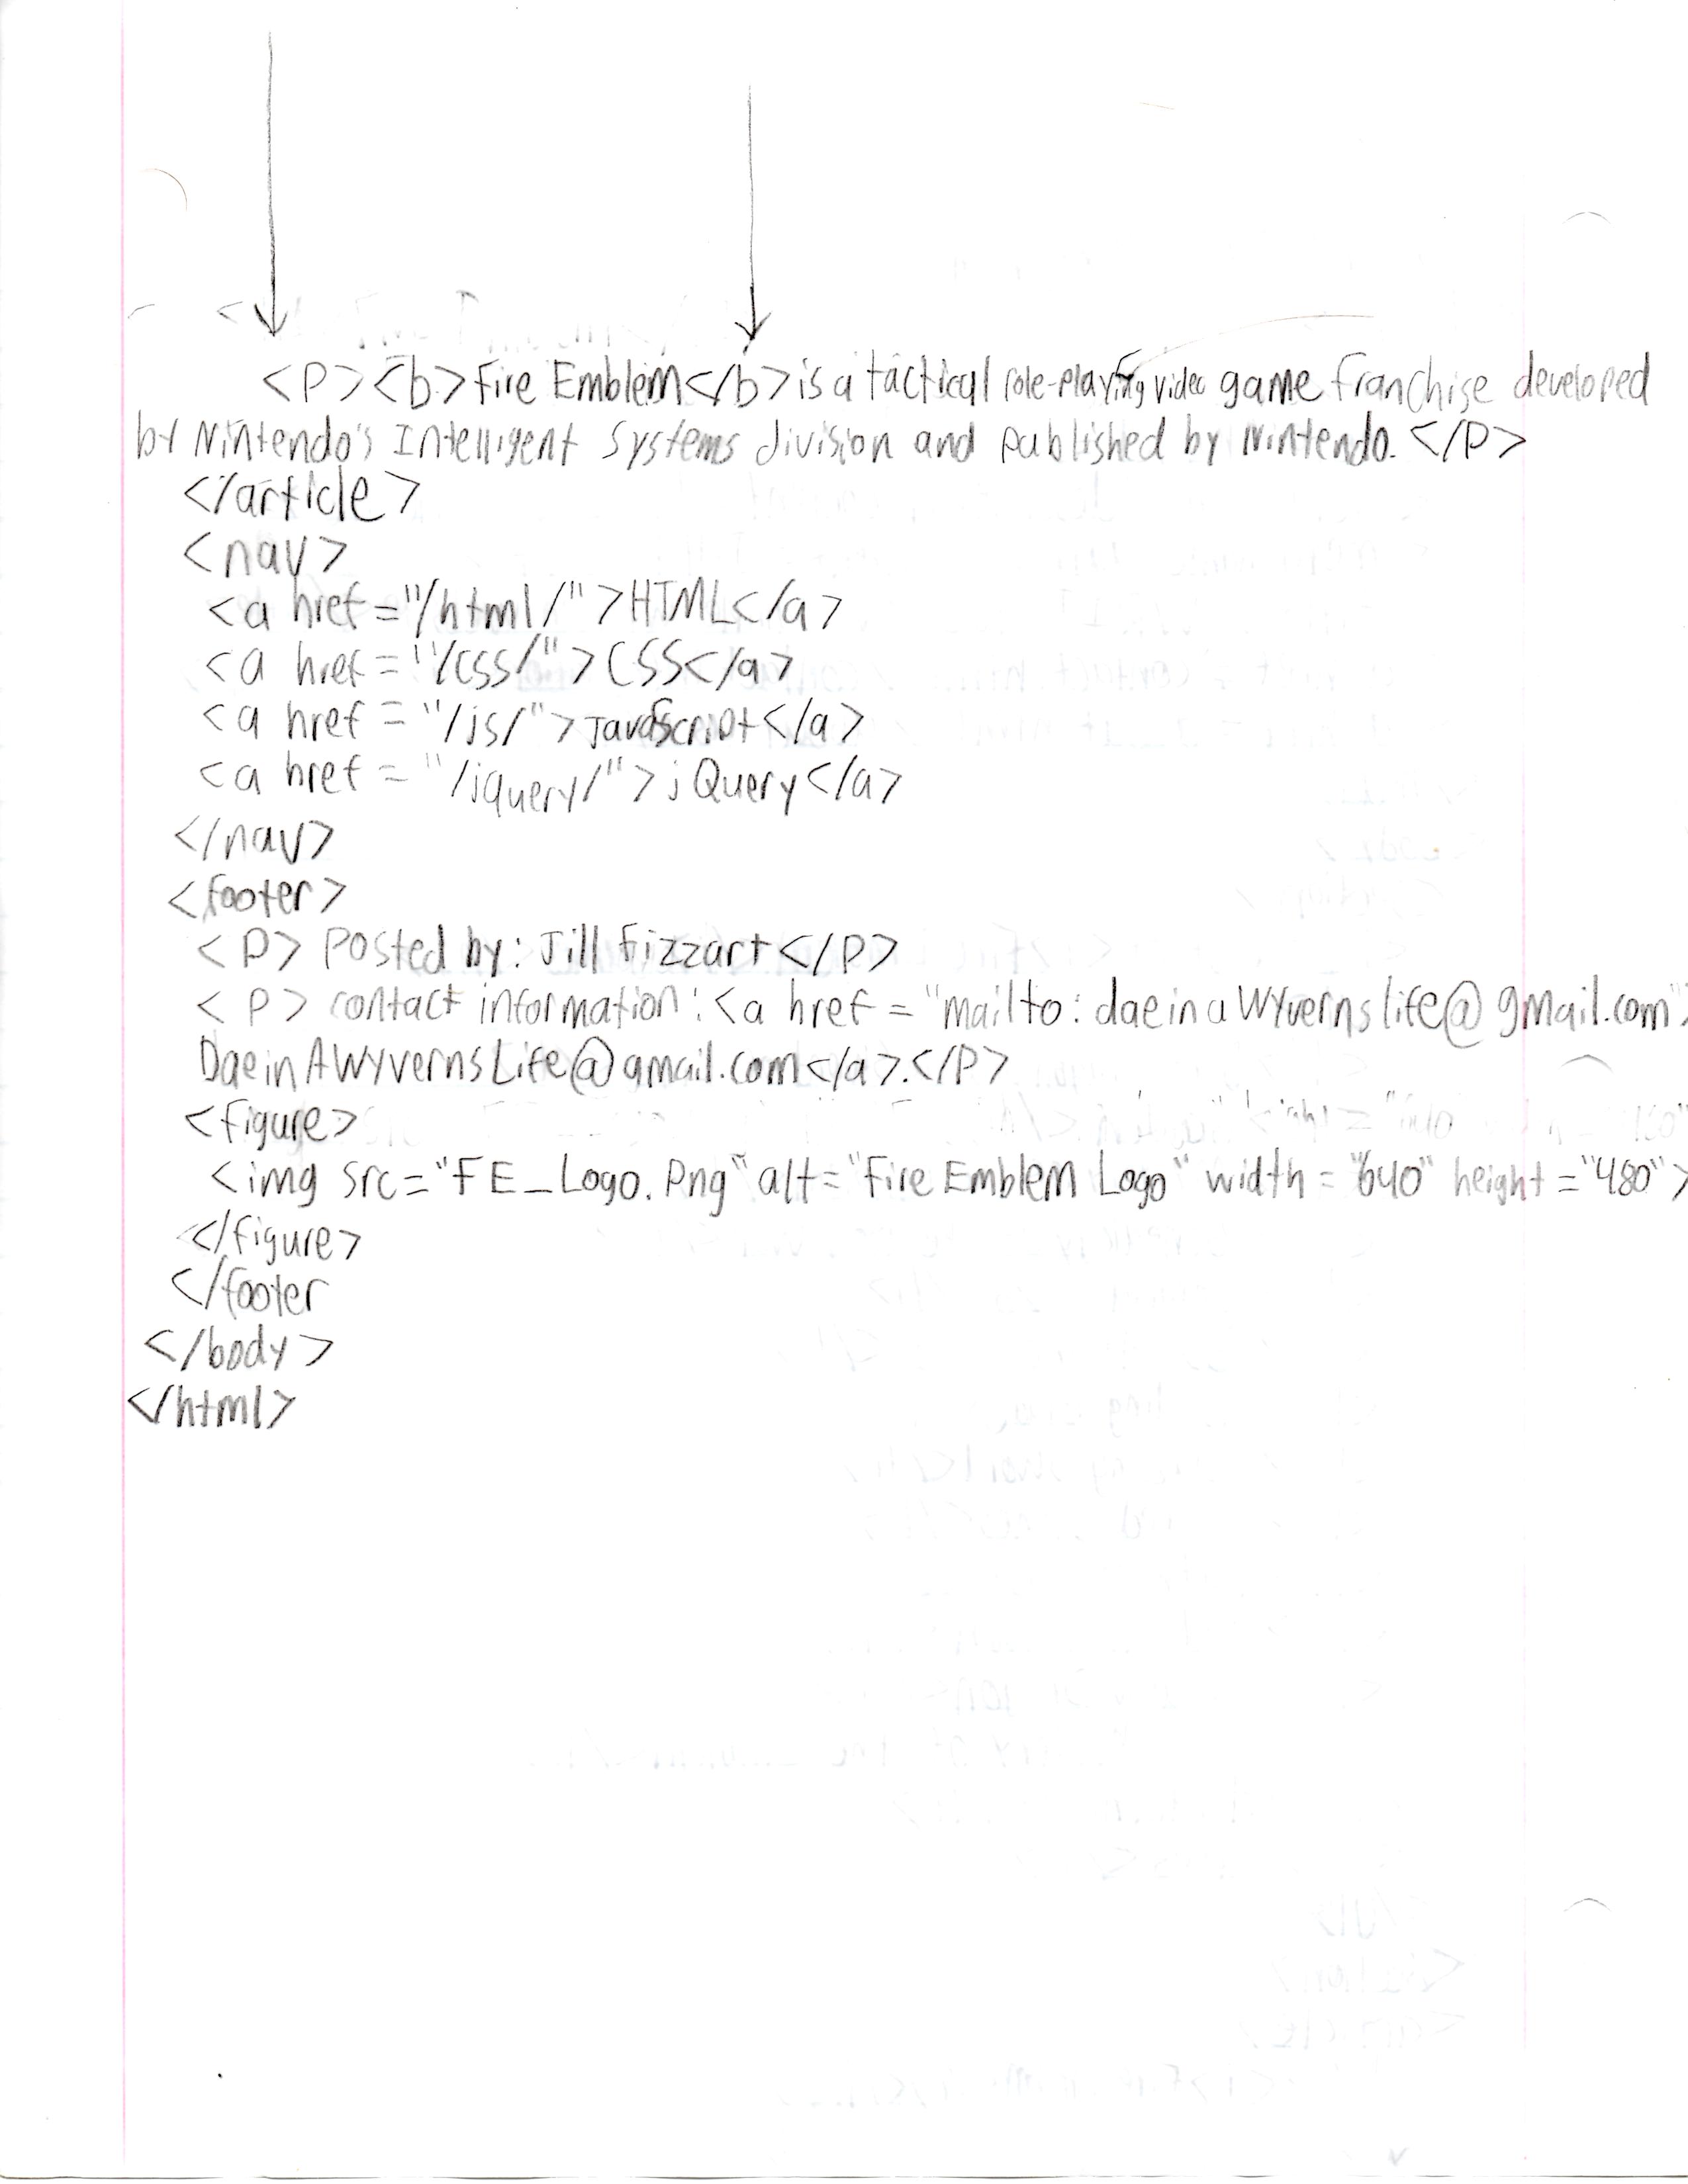 <p><b>Fire Emblem</b>is a tactical role-playing video game franchise developed
by Nintendo's Intelligent Systems division and published by Nintendo.</p>
</article>
<nav>
<a href="/html/">HTML</a>
<a href="/css/">CSS</a>
<a href="/js/">JavaScript</a>
<a href="/jquery/">jQuery</a>
</nav>
<footer>
<p>Posted by: Jill Fizzart</p>
<p>contact information:<a href="mailto:daeinaWyvernslife@gmail.com">
DaeinAWyvernsLife@gmail.com</a>.</p>
<figure>
<img src="FE_Logo.png" alt="Fire Emblem Logo" width="640" height="480">
</figure>
</footer
</body>
</html>